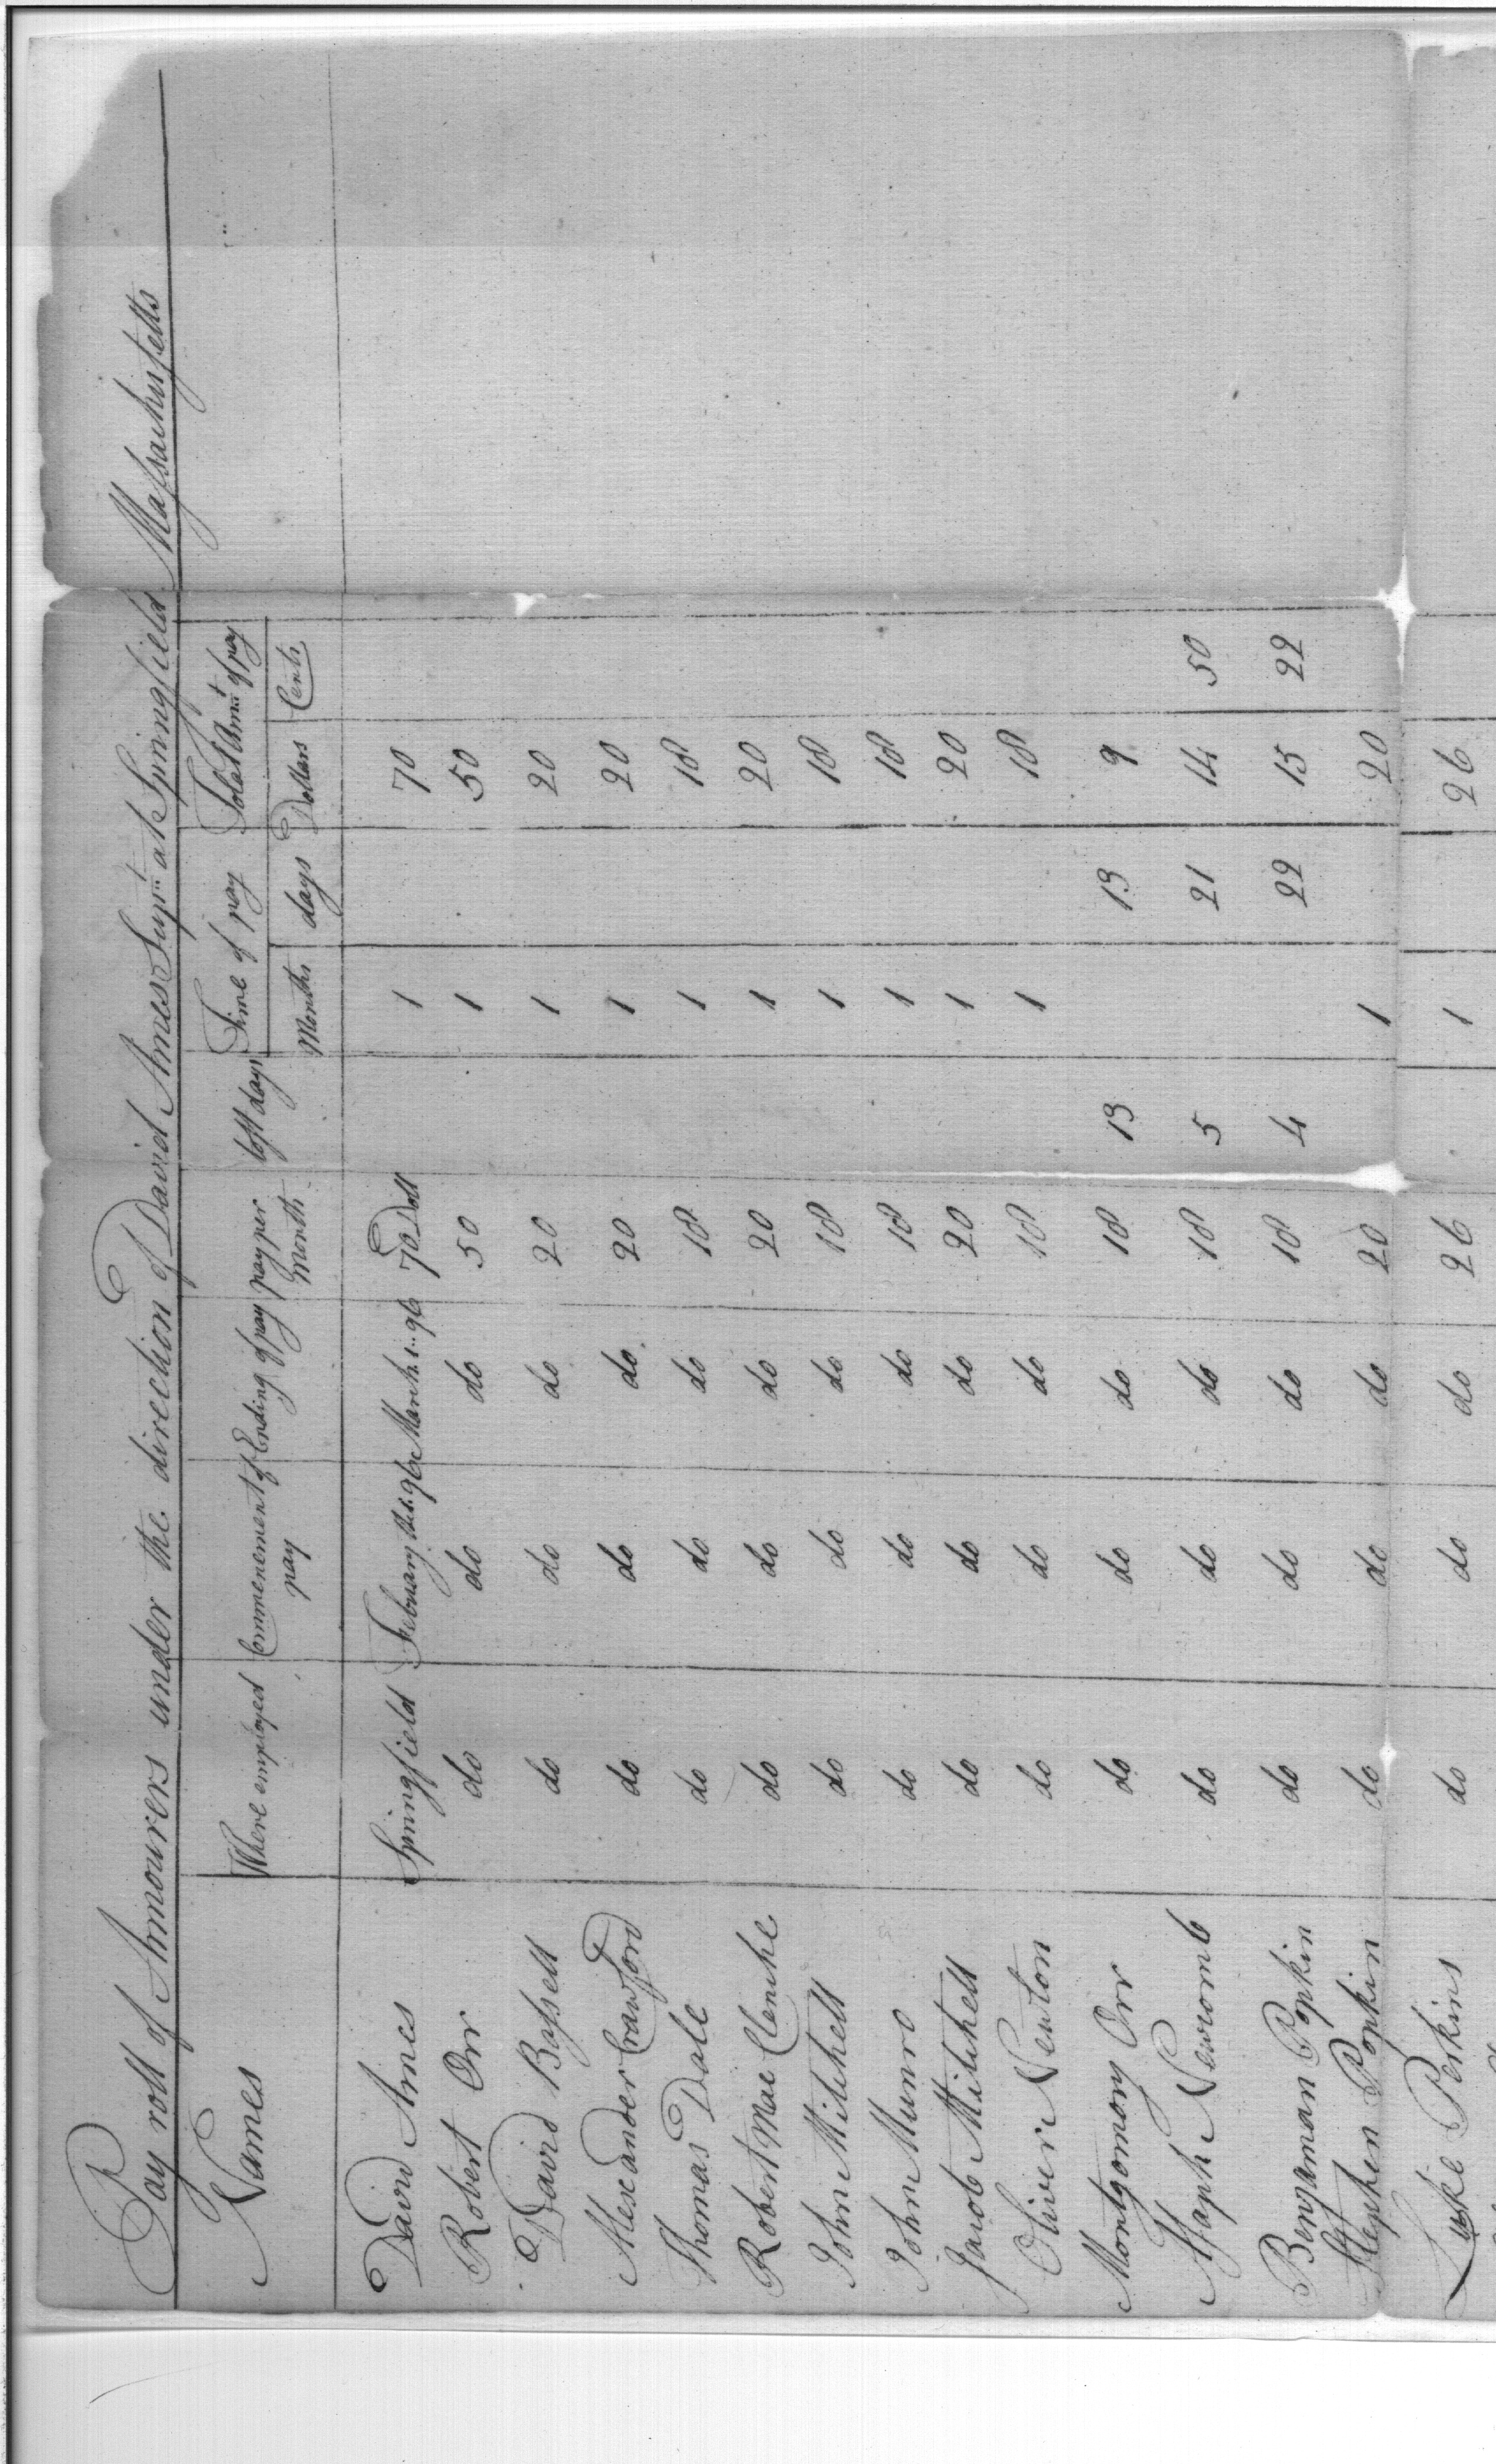 Pay roll of Armourers under the direction of David Ames Supt at Springfield Massachusetts
Names Where employed Commencement of pay Ending of pay pay per Month lost days Time of pay Total Amt of pay
Months days Dollars Cents
David Ames Springfield February the 1. 96 March 1.. 96 70 Doll 1 70
Robert Orr do do do 50 1 50
David Bassell do do do 20 1 20
Alexander Crawford do do do 20 1 20
Thomas Dale do do do 18 1 18
Robert Mac Clenche do do do 20 1 20
John Mitchell do do do 18 1 18
John Munro do do do 18 1 18
Jacob Mitchell do do do 20 1 20
Oliver Newton do do do 18 1 18
Montgomory Orr do do do 18 13 13 9
Asaph Newcomb do do do 18 5 21 14 50
Benjaman Popkin do do do 18 4 22 15 22
Stephen Popkin do do do 20 1 20
Luke Perkins do do do 26 1 26